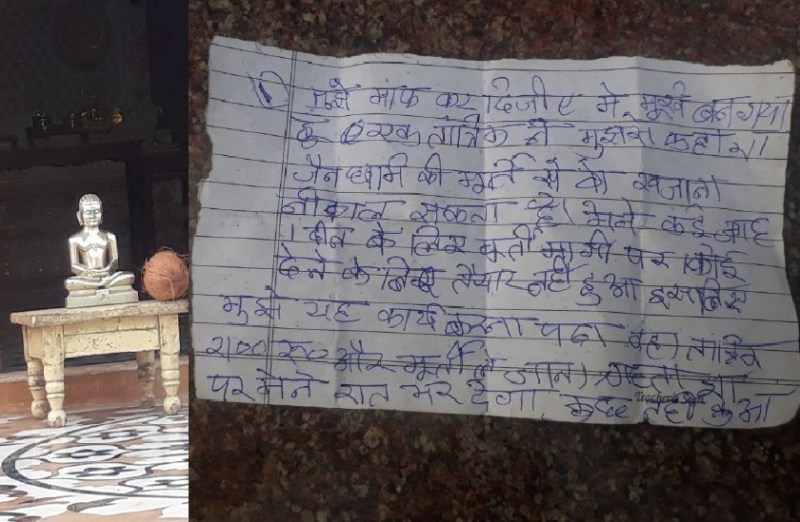 ① मुझे माफ कर दिजीए मे मूर्ख बन गया
हु एक तांत्रिक ने मुझसे कहा था
जैन धर्म की मूर्ति से वो खजाना
नीकाल सकता है। मेने कई जगह
1 दीन के लिए मूर्ती मांगी पर कोई
देने के लिए तैयार नही हुआ इसलिए
मुझे यह कार्य करना पडा वह तांत्रिक
रू० और मूर्ती ले जाना चाहता था
पर मेने रात भर देगा कुछ नही हुआ